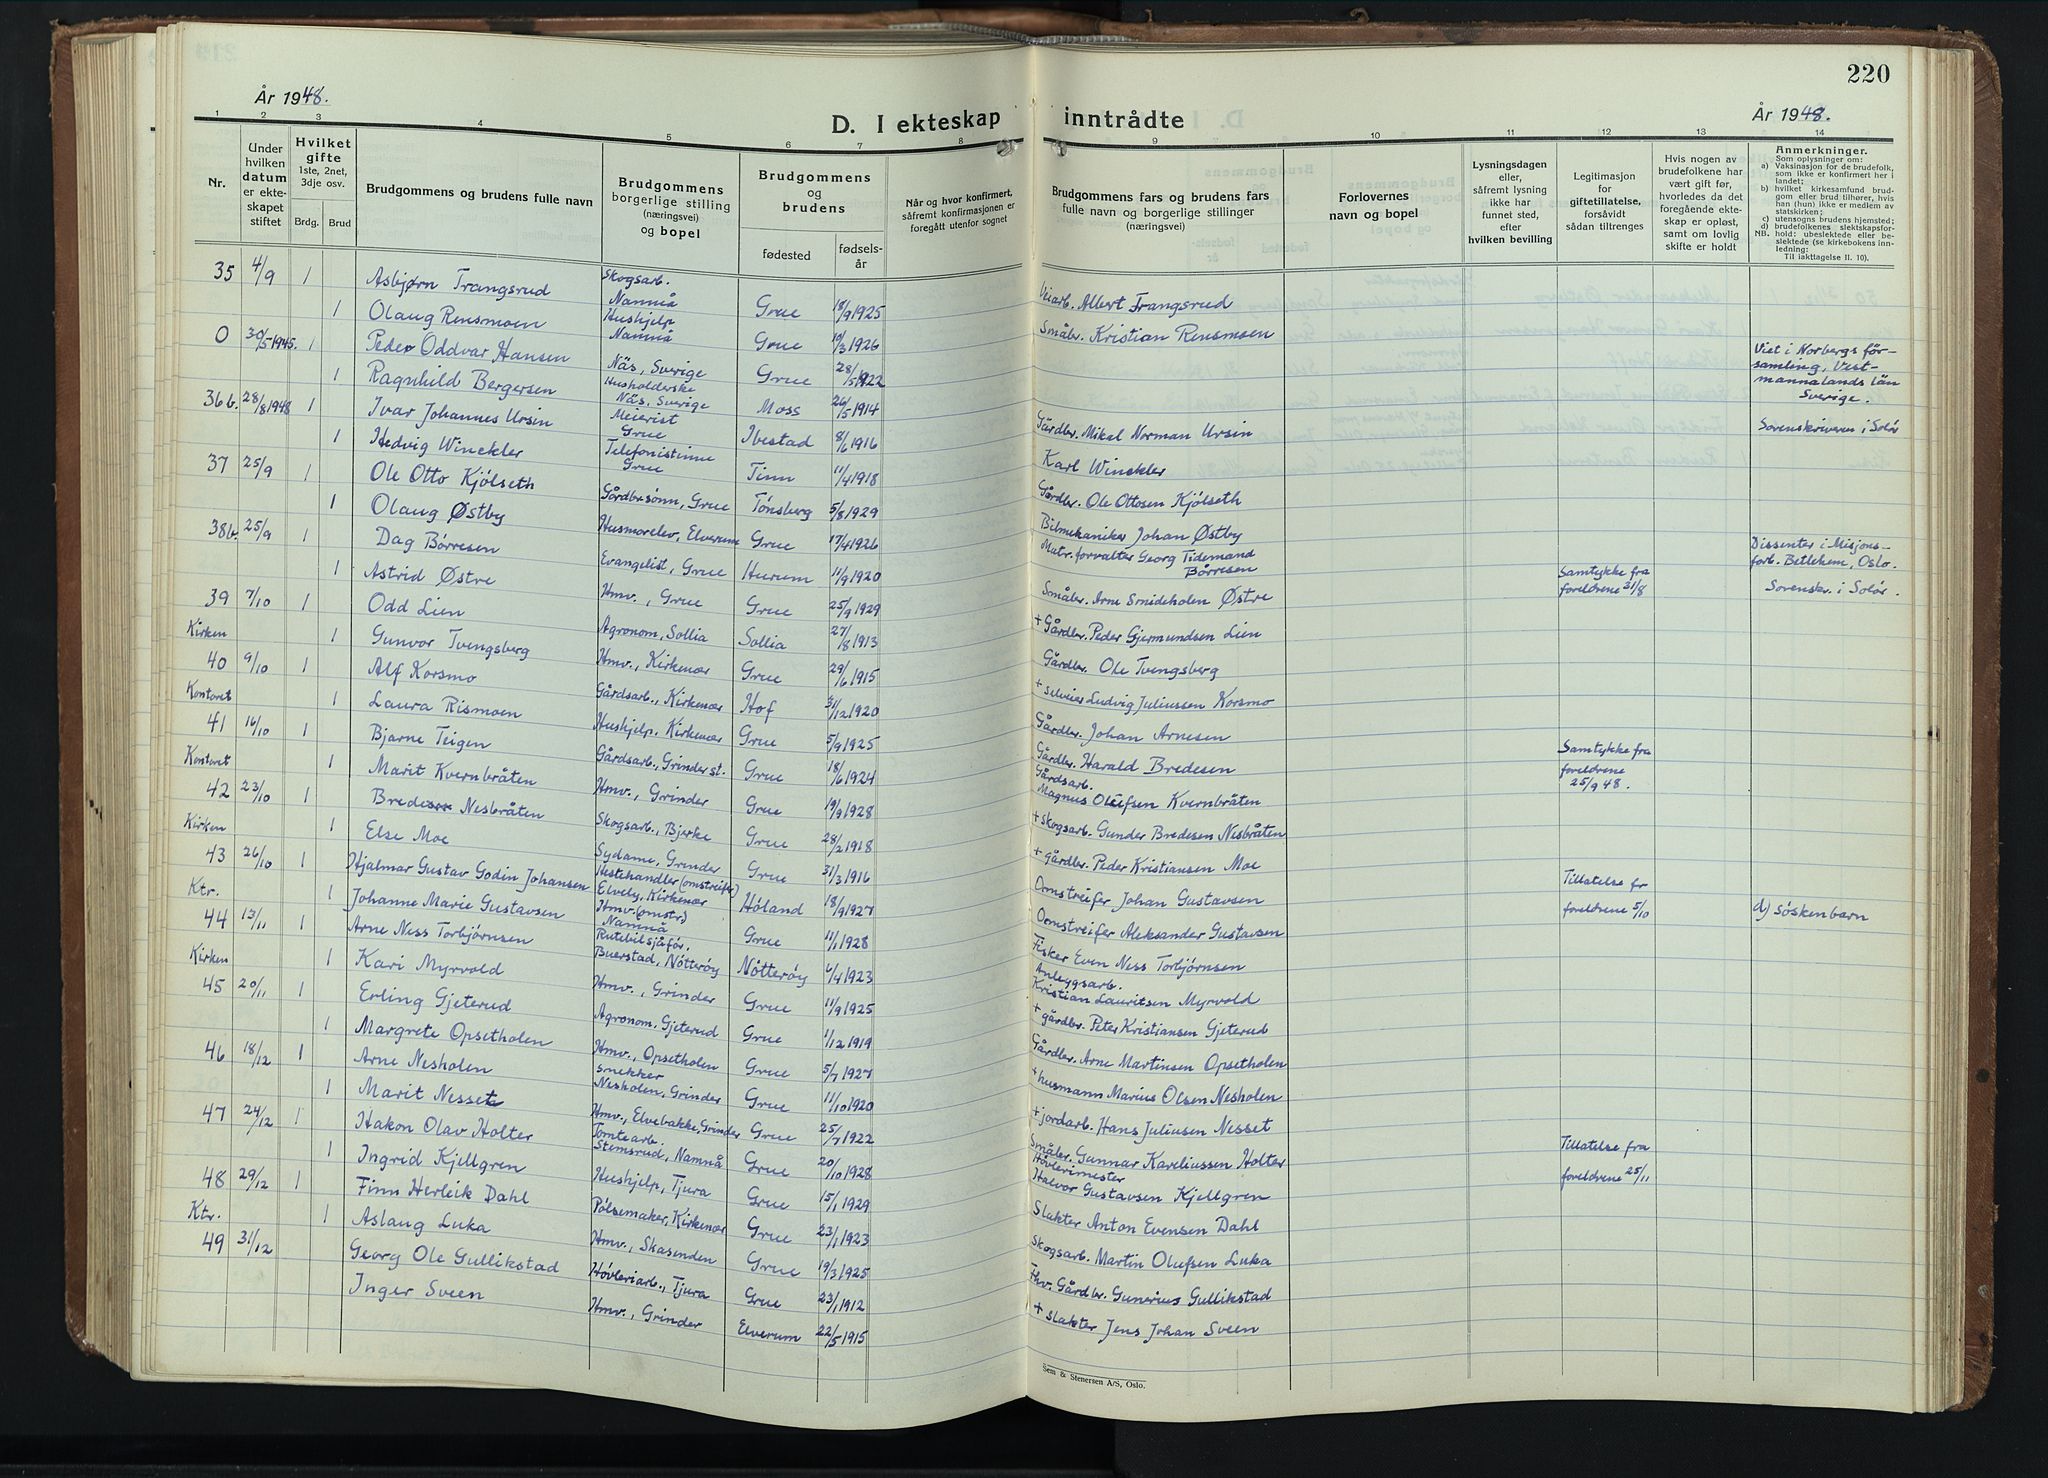 220
År 1948.
År 1948.
D. I ekteskap inntrådte
1 2 3 4 5 6 7 8 9 10 11 12 13 14
Nr.
Under hvilken datum er ekteskapet stiftet
Hvilket gifte 1ste, 2net, 3dje osv.
Brdg. Brud
Brudgommens og brudens fulle navn
Brudgommens borgerlige stilling (næringsvei) og bopel
Brudgommens og brudens
fødested
fødselsår
Når og hvor konfirmert, såfremt konfirmasjonen er foregått utenfor sognet
Brudgommens fars og brudens fars fulle navn og borgerlige stillinger (næringsvei)
Forlovernes navn og bopel
Lysningsdagen eller, såfremt lysning ikke har funnet sted, efter hvilken bevilling
Legitimasjon for giftetillatelse, forsåvidt sådan tiltrenges
Hvis nogen av brudefolkene har vært gift før, hvorledes da det foregående ekteskap er opløst, samt om lovlig skifte er holdt
Anmerkninger.
Som oplysninger om:
a) Vaksinasjon for de brudefolk, som ikke er konfirmert her i landet;
b) hvilket kirkesamfund brudgom eller brud tilhører, hvis han (hun) ikke er medlem av statskirken;
c) utensogns brudens hjemsted;
d) brudefolkenes slektskapsforhold: ubeslektede eller beslektede (se kirkebokens innledning:
NB.
Til iakttagelse II. 10).
35 4/9 1 Asbjørn Trangsrud Skogsarb. Namnå Grue 18/9 1925 Veiarb. Albert Trangsrud
1 Olaug Rensmoen Hushjelp Namnå Grue 10/3 1926 Småbr. Kristian Rensmoen
0 30/5 1945. 1 Peder Oddvar Hansen Näs, Sverige Grue 28/5 1922 Viet i Norbergs församling, Vestmannalands län Sverige.
1 Ragnhild Bergersen Husholderske Näs, Sverige Moss 26/5 1914
36 b. 28/8 1948 1 Ivar Johannes Ursin Meierist Grue Ibestad 8/6 1916 Gårdbr. Mikal Norman Ursin Sorenskriveren i Solør
1 Hedvig Winckler Telefonistinne Grue Tinn 11/4 1918 Karl Winckler
37 25/9 1 Ole Otto Kjölseth Gårdbrsönn, Grue Tönsberg 5/8 1929 Gårdbr. Ole Ottosen Kjölseth
1 Olaug Østby Husmorelev, Elverum Grue 17/4 1926 Bilmekaniker Johan Østby
38 b. 25/9 1 Dag Börresen Evangelist, Grue Hurum 11/9 1920 Matr. forvalter Georg Tidemand Börresen Dissenter i Misjonsforb. Betlehem, Oslo.
1 Astrid Østre Hmv., Grue Grue 25/9 1929 Småbr. Arne Smideholen Østre Samtykke fra foreldrene 31/8 Sorenskr. i Solør.
39 7/10 1 Odd Lien Agronom, Sollia Sollia 27/8 1913 + Gårdbr. Peder Gjermundsen Lien
Kirken 1 Gunvor Tvengsberg Hmv., Kirkenær Grue 29/6 1915 Gårdbr. Ole Tvengsberg
40 9/10 1 Alf Korsmo Gårdsarb., Kirkenær Hof 31/12 1920 + selveier Ludvig Juliussen Korsmo
Kontoret 1 Laura Rismoen Hushjelp, Kirkenær Grue 5/9 1925 Gårdbr. Johan Arnesen
41 16/10 1 Bjarne Teigen Gårdsarb., Grinder st. Grue 18/6 1924 Gårdbr. Harald Bredesen
Kontoret 1 Marit Kvernbråten Hmv., Grinder Grue 19/9 1928 Gårdsarb. Magnus Olufsen Kvernbråten Samtykke fra foreldrene 25/9 48.
42 23/10 1 Brede Nesbråten Skogsarb., Bjerke Grue 28/2 1918 + Skogsarb. Gunder Bredesen Nesbråten
Kirken 1 Else Moe Sydame, Grinder Grue 31/3 1916 + gårdbr. Peder Kristiansen Moe
43 26/10 1 Hjalmar Gustav Godin Johansen Hestehandler (omstreifer) Elvely, Kirkenær Höland 18/9 1927 Omstreifer Johan Gustavsen
Ktr. 1 Johanne Marie Gustavsen Hmv. (omstr.) Namnå Grue 11/1 1928 Omstreifer Aleksander Gustavsen Tillatelse fr foreldrene 5/10 d) söskenbarn
44 13/11 1 Arne Ness Torbjörnsen Rutebilsjåför. Buerstad, Nötteröy Nötteröy 6/4 1923 Fisker Even Ness Torbjörnsen
Kirken 1 Kari Myrvold Hmv., Grinder Grue 11/9 1925 Anleggsarb. Kristian Lauritsen Myrvold
45 20/11 1 Erling Gjeterud Agronom, Gjeterud Grue 11/12 1919 + gårdbr. Peter Kristiansen Gjeterud
1 Margrete Opsetholen Hmv., Opsetholen Grue 5/7 1927 Gårdbr. Arne Martinsen Opsetholen
46 18/12 1 Arne Nesholen snekker Nesholen, Grinder Grue 11/10 1920 + husmann Marius Olsen Nesholen
1 Marit Nesset Hmv., Elvebakke, Grinder Grue 25/7 1922 + jordarb. Hans Juliusen Nesset
47 24/12 1 Hakon Olav Holter Tomtearb. Stemsrud, Namnå Grue 20/10 1928 Småbr. Gunnar Kareliussen Holter
1 Ingrid Kjellgren Hushjelp, Tjura Grue 15/1 1929 Hövlerimester Halvor Gustavsen Kjellgren Tillatelse fra foreldrene 25/11
48 29/12 1 Finn Herleik Dahl Pölsemaker, Kirkenær Grue 23/1 1923 Slakter Anton Evensen Dahl
Ktr. 1 Aslaug Luka Hmv., Skasenden Grue 19/3 1925 Skogsarb. Martin Olufsen Luka
49 31/12 Georg Ole Gullikstad Hövleriarb., Tjura Grue 23/1 1912 Fhv. Gårdbr. Gunerius Gullikstad
Inger Sveen Hmv., Grinder Elverum 22/5 1915 + slakter Jens Johan Sveen
Sem & Stenersen A/S, Oslo.